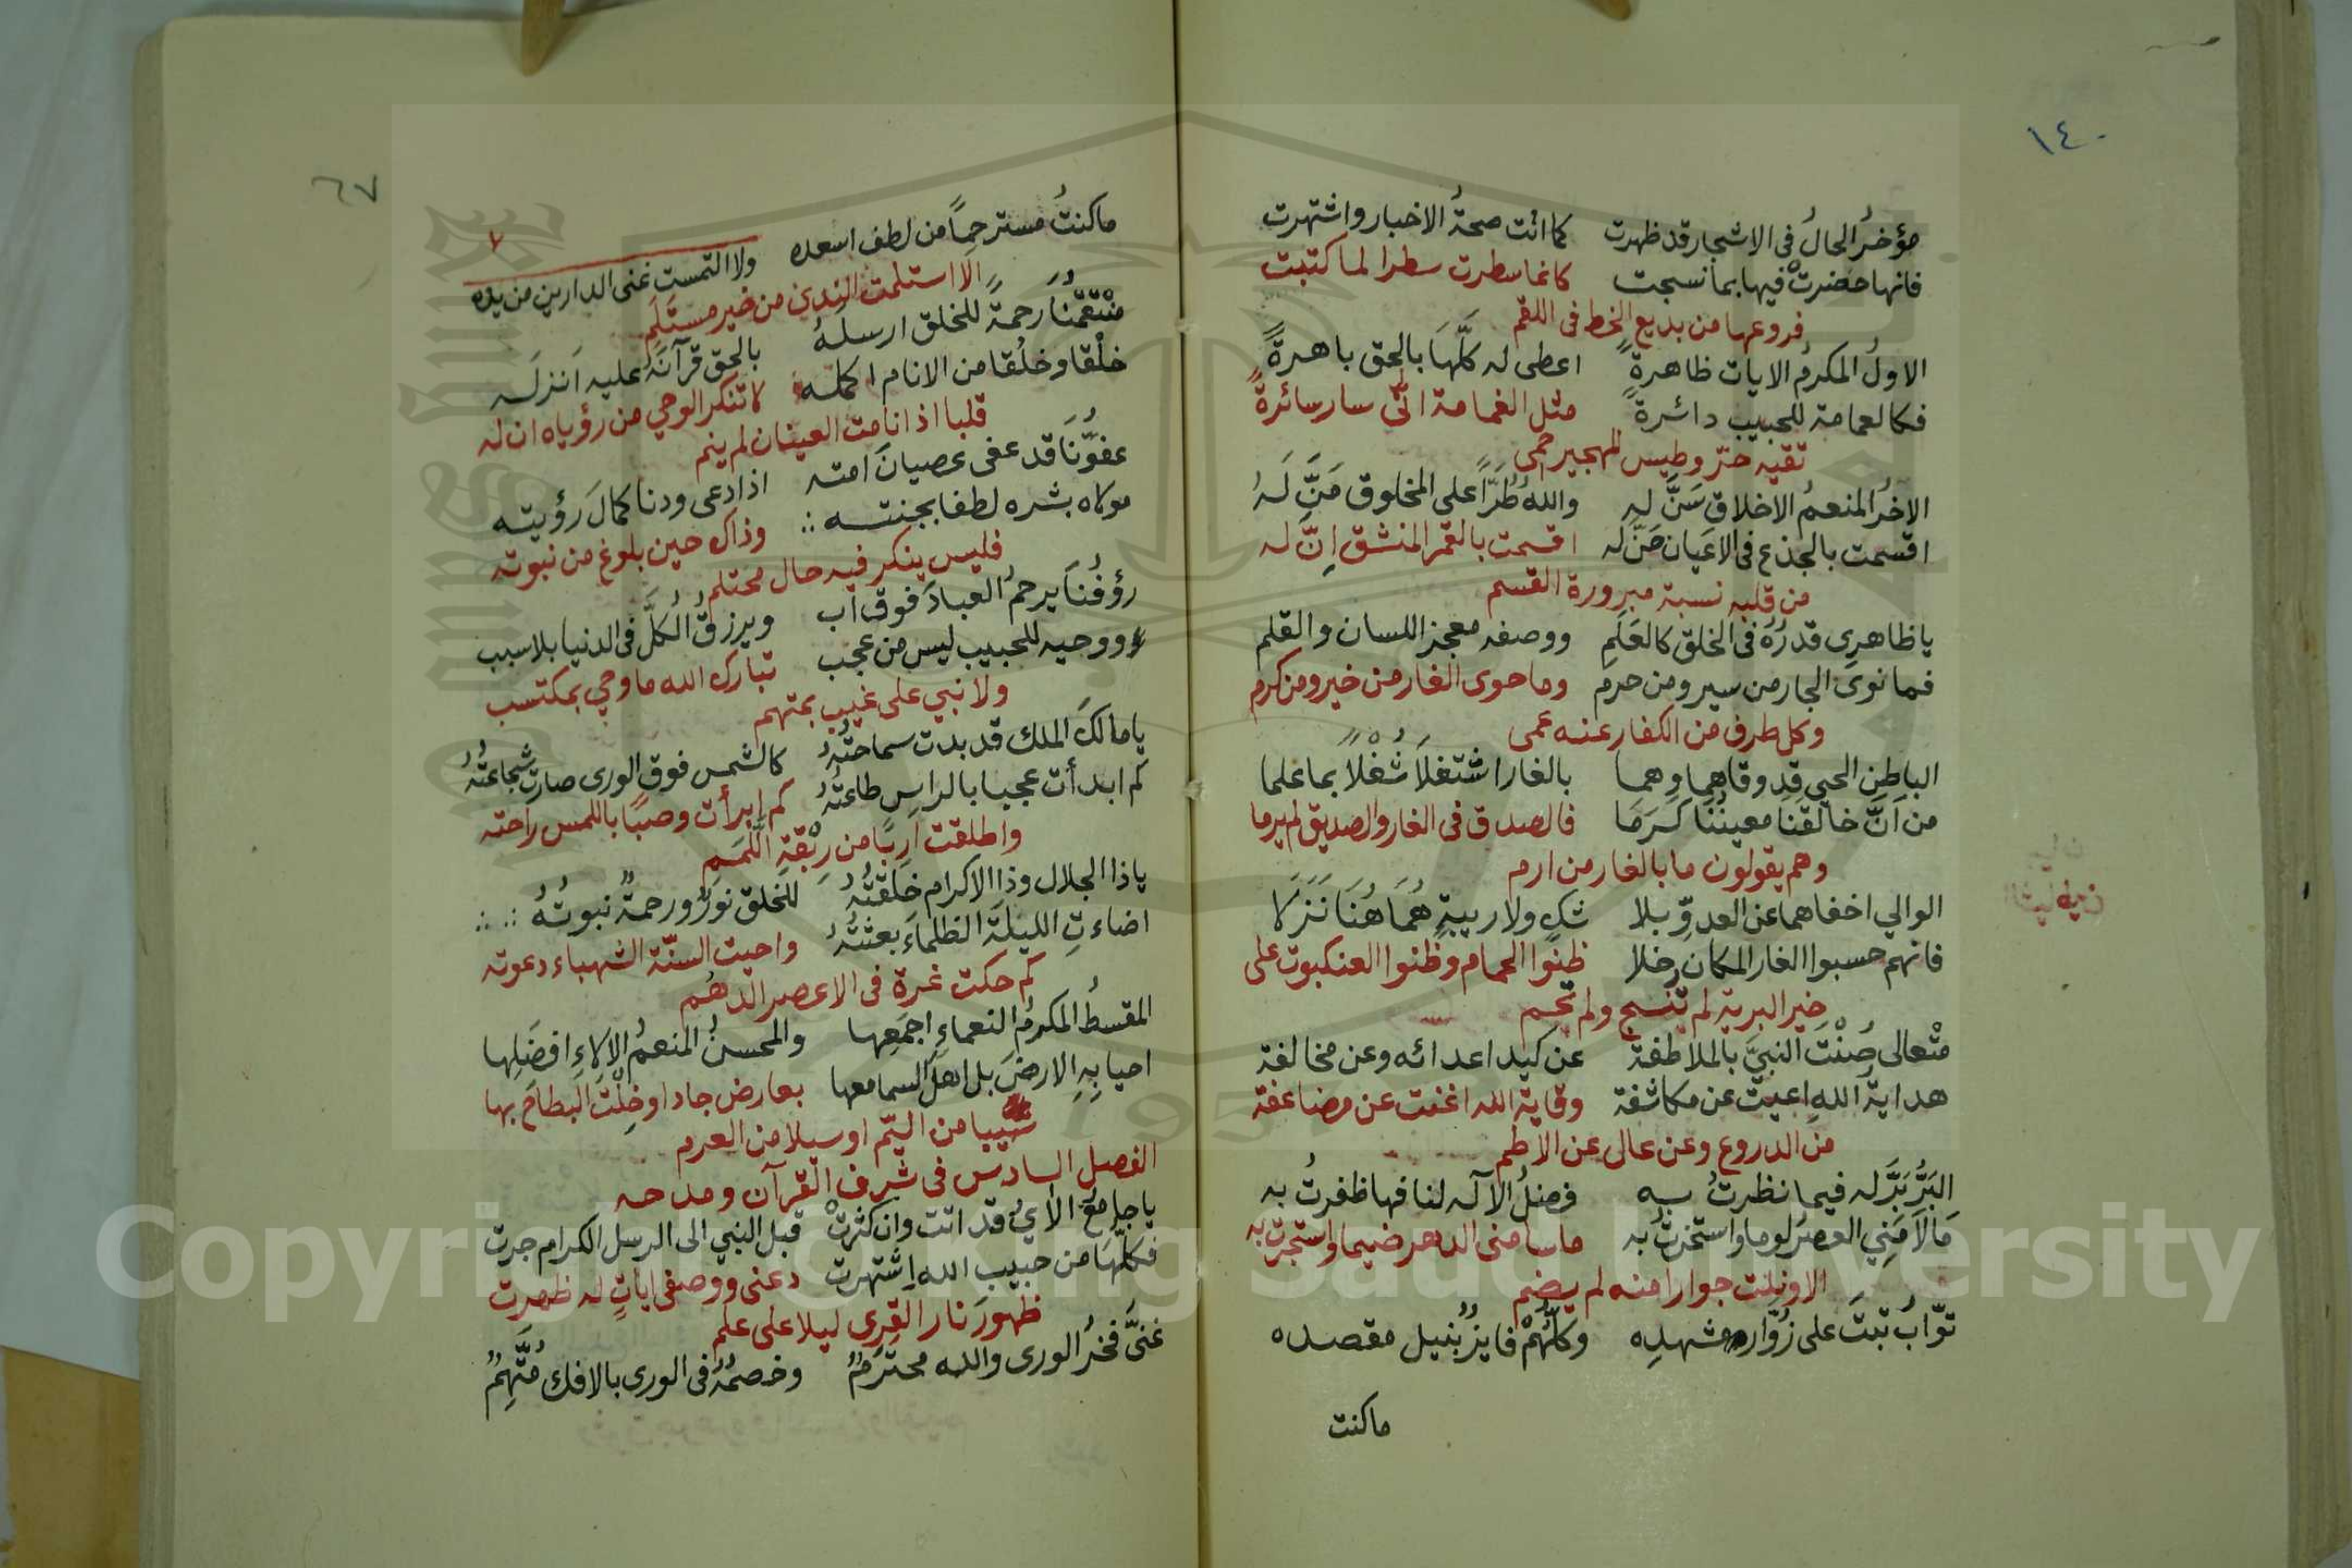 ١٤٠
مؤخرُ الحالُ فى الاشجار قد ظهرت كما اتت صحةُ الاخبار واشتهرت
فانها حضرتْ فيها بما نسجت كانما سطرت سطرا لما كتبت
فروعها من بديع الخط فى اللقم
الاولُ المكرمُ الايات ظاهرةً اعطى له كلَّهَا بالحق باهرةً
فكالعمامة للحبيب دائرة مثل الغمامة انّى سار سائرةً
تقيه حرّ وطيس للهجير حمى
الاخرُ المنعمُ الاخلاق سَنَّ له واللهُ طُرّاً على المخلوق مَنَّ لَهُ
اقسمت بالجذع فى الاعيان حَنّ له اقسمت بالقمر المنشق اِنّ له
من قلبه نسبة مبرورة القسم
يا ظاهرى قدرُهُ فى الخلق كالعَلَمِ ووصفه معجز اللسان والقلم
فما نوى الجار من سير ومن حرم وما حوى الغار من خير ومن كرم
وكل طرف من الكفار عنه عمى
الباطن الحيى قد وقاهما وهما بالغار اشتغلا شُغْلاً بما علما
من اَنَّ خالقَنَا معينُنَا كَرَمَا فالصدق فى الغار والصديق لم يرما
وهم يقولون ما بالغار من ارم
الوالي اخفاهما عن العدوِّ بلا شكٍ ولا ريبةٍ هُمَا هُنَا نَزَلَا
فانهم حسبوا الغار المكان خلا ظنوا الحمام وظنوا العنكبوت على
خير البرية لم تنسج ولم تحم
متعالى صُنْتَ النبيَّ بالملاطفة عن كيد اعدائه وعن مخالفة
هدايةُ اللهِ اعيت عن مكاشفة وقاية الله اغنت عن مضاعفة
من الدروع وعن عالى عن الأطم
البَرُّ بَرَّ له فيما نظرتُ به فضلُ الآله لنا فها ظفرتُ به
مَا لَامَنِي العصر لوما واستخرت به ما سامنى الدهر ضيما واستجرت به
الا ونلت جوارا منه لم يضم
توّابُ تبتَ على زُوّاره مشهدِه وكلُّهُمْ فايزُ بنيل مقصده
ما كنت
٦٧
٧
ما كنتُ مسترحِماً من لطف اسعده ولا التمست غنى الدارين من يده
الا استلمت الندى من خير مستلم
منتقمُنا رحمةً للخلق ارسلهُ بالحق قرآنَهُ عليه اَنزلَه
خلْقا وخلُقا من الانام اكمله لا تنكر الوحي من رؤياه ان له
قلبا اذا نامت العينان لم ينم
عفوُّنَا قد عفى عصيانَ امته اذا دعى ودنا كمالَ رؤيته
مولاه بشره لطفا بجنته وذاك حين بلوغ من نبوته
فليس ينكر فيه حال محتلم
رؤفُنَا يرحمُ العبادَ فوق اَب ويرزقُ الكلَّ فى الدنيا بلا سبب
ووحيه للحبيب ليس من عجب تبارك الله ما وحي بمكتسب
ولا نبي على غيب بمتهم
يا مالكَ الملك قد بدت سماحتُهُ كالشمس فوق الورى صارت شجاعتُهُ
كم ابدأت عجبا بالراس طاعتُهُ كم ابرأت وصبًا باللمس راحته
واطلقت اربًا من رِبْقَةِ اللَّمَم
يا ذا الجلال وذا الاكرام خلقتُهُ للخلق نورٌ ورحمةٌ نبوتُهُ
اضاءتِ الليلةَ الظلماءَ بعثتُهُ واحيت السنّة الشهباء دعوته
كم حكت غرة فى الاعصر الدهُم
المقسطُ المكرمُ النعماءِ اجمَعِها والمحسنُ المنعمُ الالاءِ افضَلِها
احيا بِهِ الارضَ بل اهلَ السما معها بعارض جاد او خِلْتَ البطاحَ بها
سيبا من اليّم او سيلا من العرم
الفصل السادس فى شرف القرآن ومدحه
يا جامعَ الأيُ قد اتت وان كثرتْ قبل النبي الى الرسل الكرام جرت
فكلُّها من حبيب الله اشتهرت دعنى ووصفى اياتٍ له ظهرت
ظهورَ نار القِرى ليلا على علم
غنيَّ فخرُ الورى والله محترمٌ وخصمُهُ فى الورى بالافك مُتَّهِمٌ
Copyright © King Saud University
1957